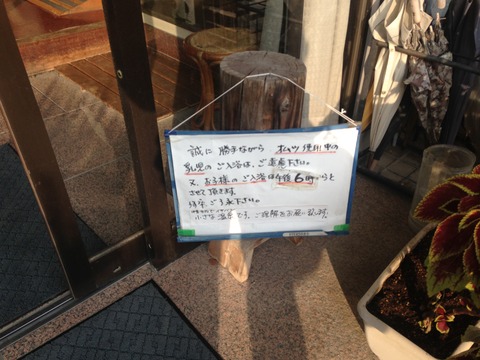 誠に勝手ながら オムツ使用中の
乳児のご入浴は、ご遠慮下さい。
又、お子様のご入浴は午後6時からと
させて頂きます。
ご了承下さい。
小さな温泉です、ご理解をお願い致します。